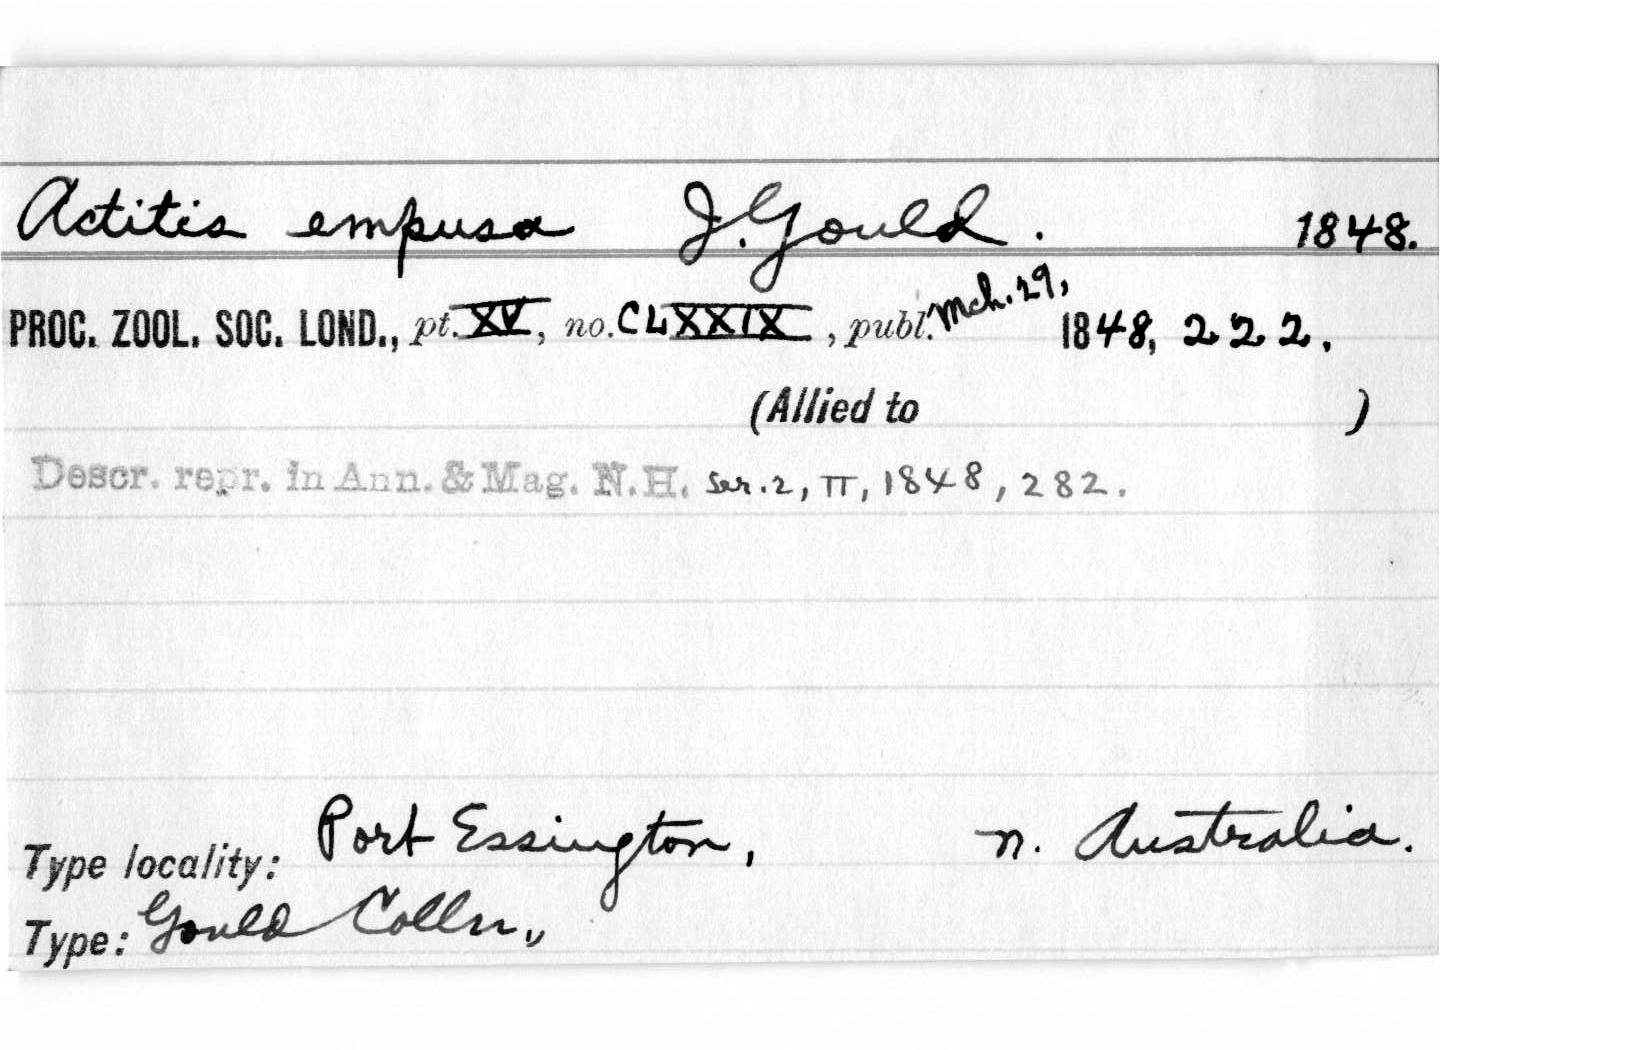 Actitis empusa J. Gould. 1848.
PROC. ZOOL. SOC. LOND., pt. XV, no. CLXXIX, publ. Mch. 29, 1848, 222.
(Allied to )
Descr. repr. in Ann. & Mag. N.H. Ser. 2, II, 1848, 282.
Type locality: Port Essington, n. Australia.
Type: Gould Colln.,